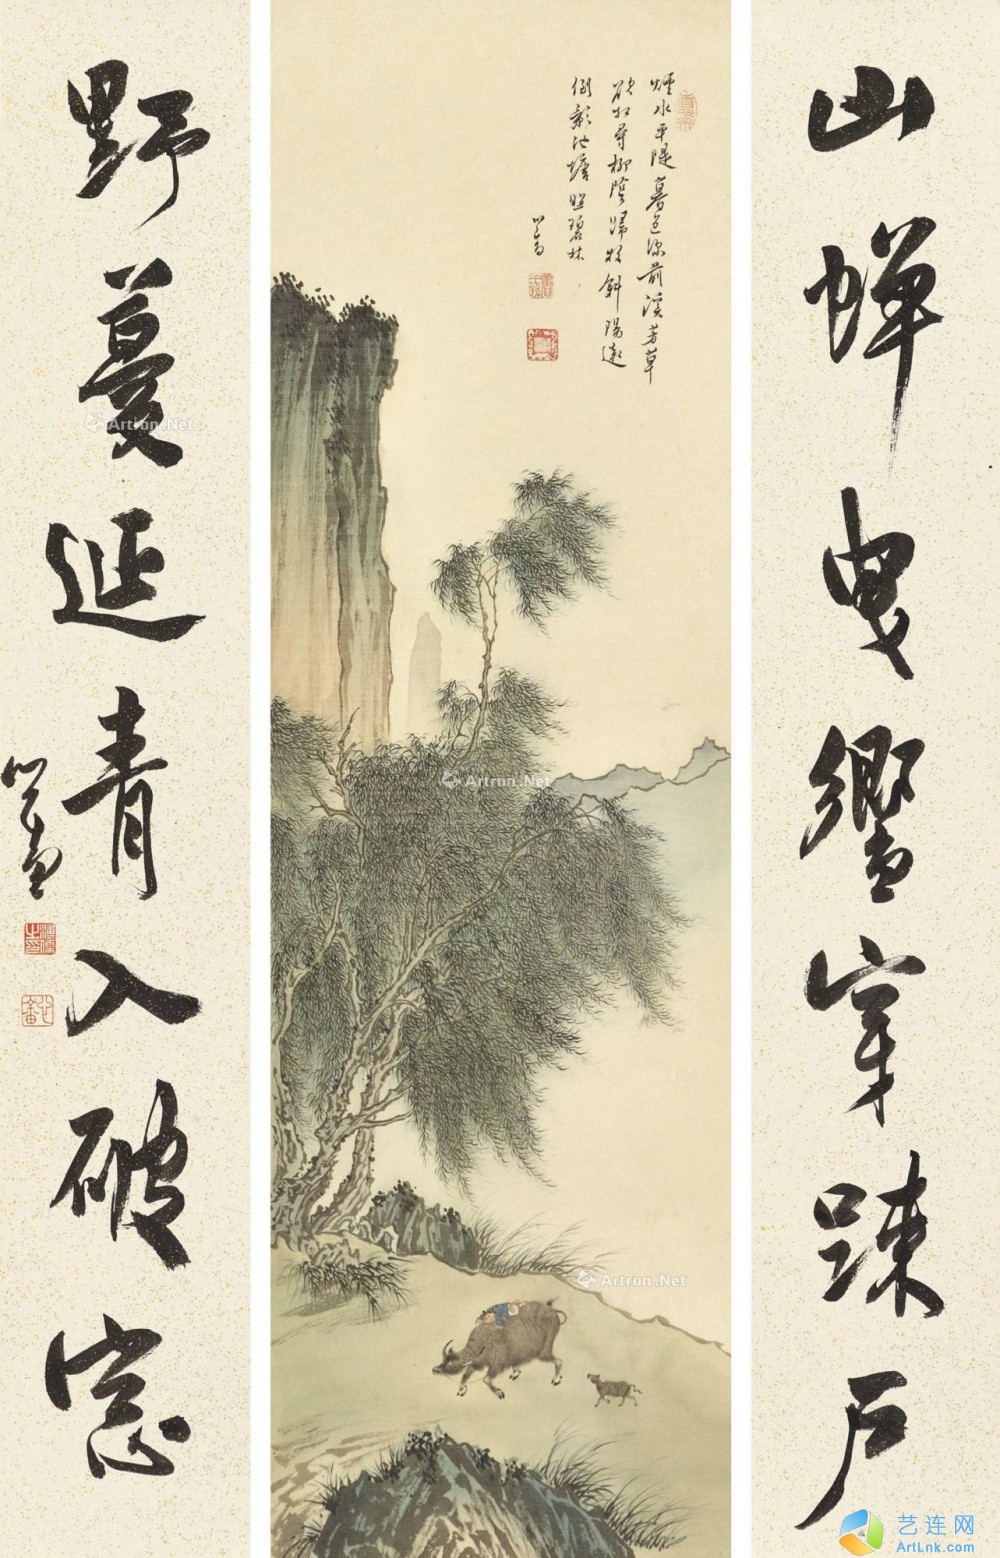 山蟬曳響穿疎户
煙水平隄暮色深前溪芳草
欲相尋柳陰歸牧斜陽遠
倒影池塘照碧林
心畬
野蔓延青入破窓
心畬
Artron.Net
Artron.Net
Artron.Net
艺连网
ArtLnk.com